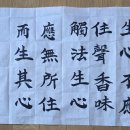 生心不應
住聲香味
觸法生心
應無所住
而生其心